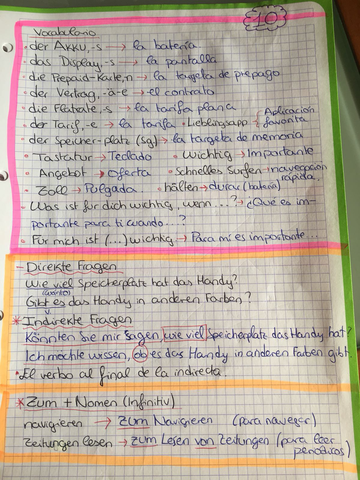 10
Vocabulario
· der Akku, -s → la batería
· das Display, -s → la pantalla
· die Prepaid-Karte, n → la targeta de prepago
· der Vertrag, -ä-e → el contrato
· die Flatrate, s → la tarifa plana
· der Tarif, -e → la tarifa · Lieblingsapp { Aplicación favorita
· der Speicherplatz (sg) → la targeta de memoria
· Tastatur → Teclado · Wichtig → Importante
· Angebot → Oferta · Schnelles Surfen → navegación rápida
· Zoll → Pulgada · halten → durar (batería)
· Was ist für dich wichtig, wenn ...? → ¿Qué es im-
portante para ti cuando ....?
· Für mich ist (...) wichtig → Para mí es importante...
- Direkte Fragen
Wie viel Speicherplatz hat das Handy?
Gibt es das Handy in anderen Farben?
* Indirekte Fragen
Könnten Sie mir sagen, wie viel Speicherplatz das Handy hat?
Ich möchte wissen, ob es das Handy in anderen Farben gibt.
· El verbo al final de la indirecta.
* Zum + Nomen (Infinitiv)
navigieren → zum Navigieren (para navegar)
Zeitungen lesen → zum Lesen von Zeitungen (para leer
periodicos)